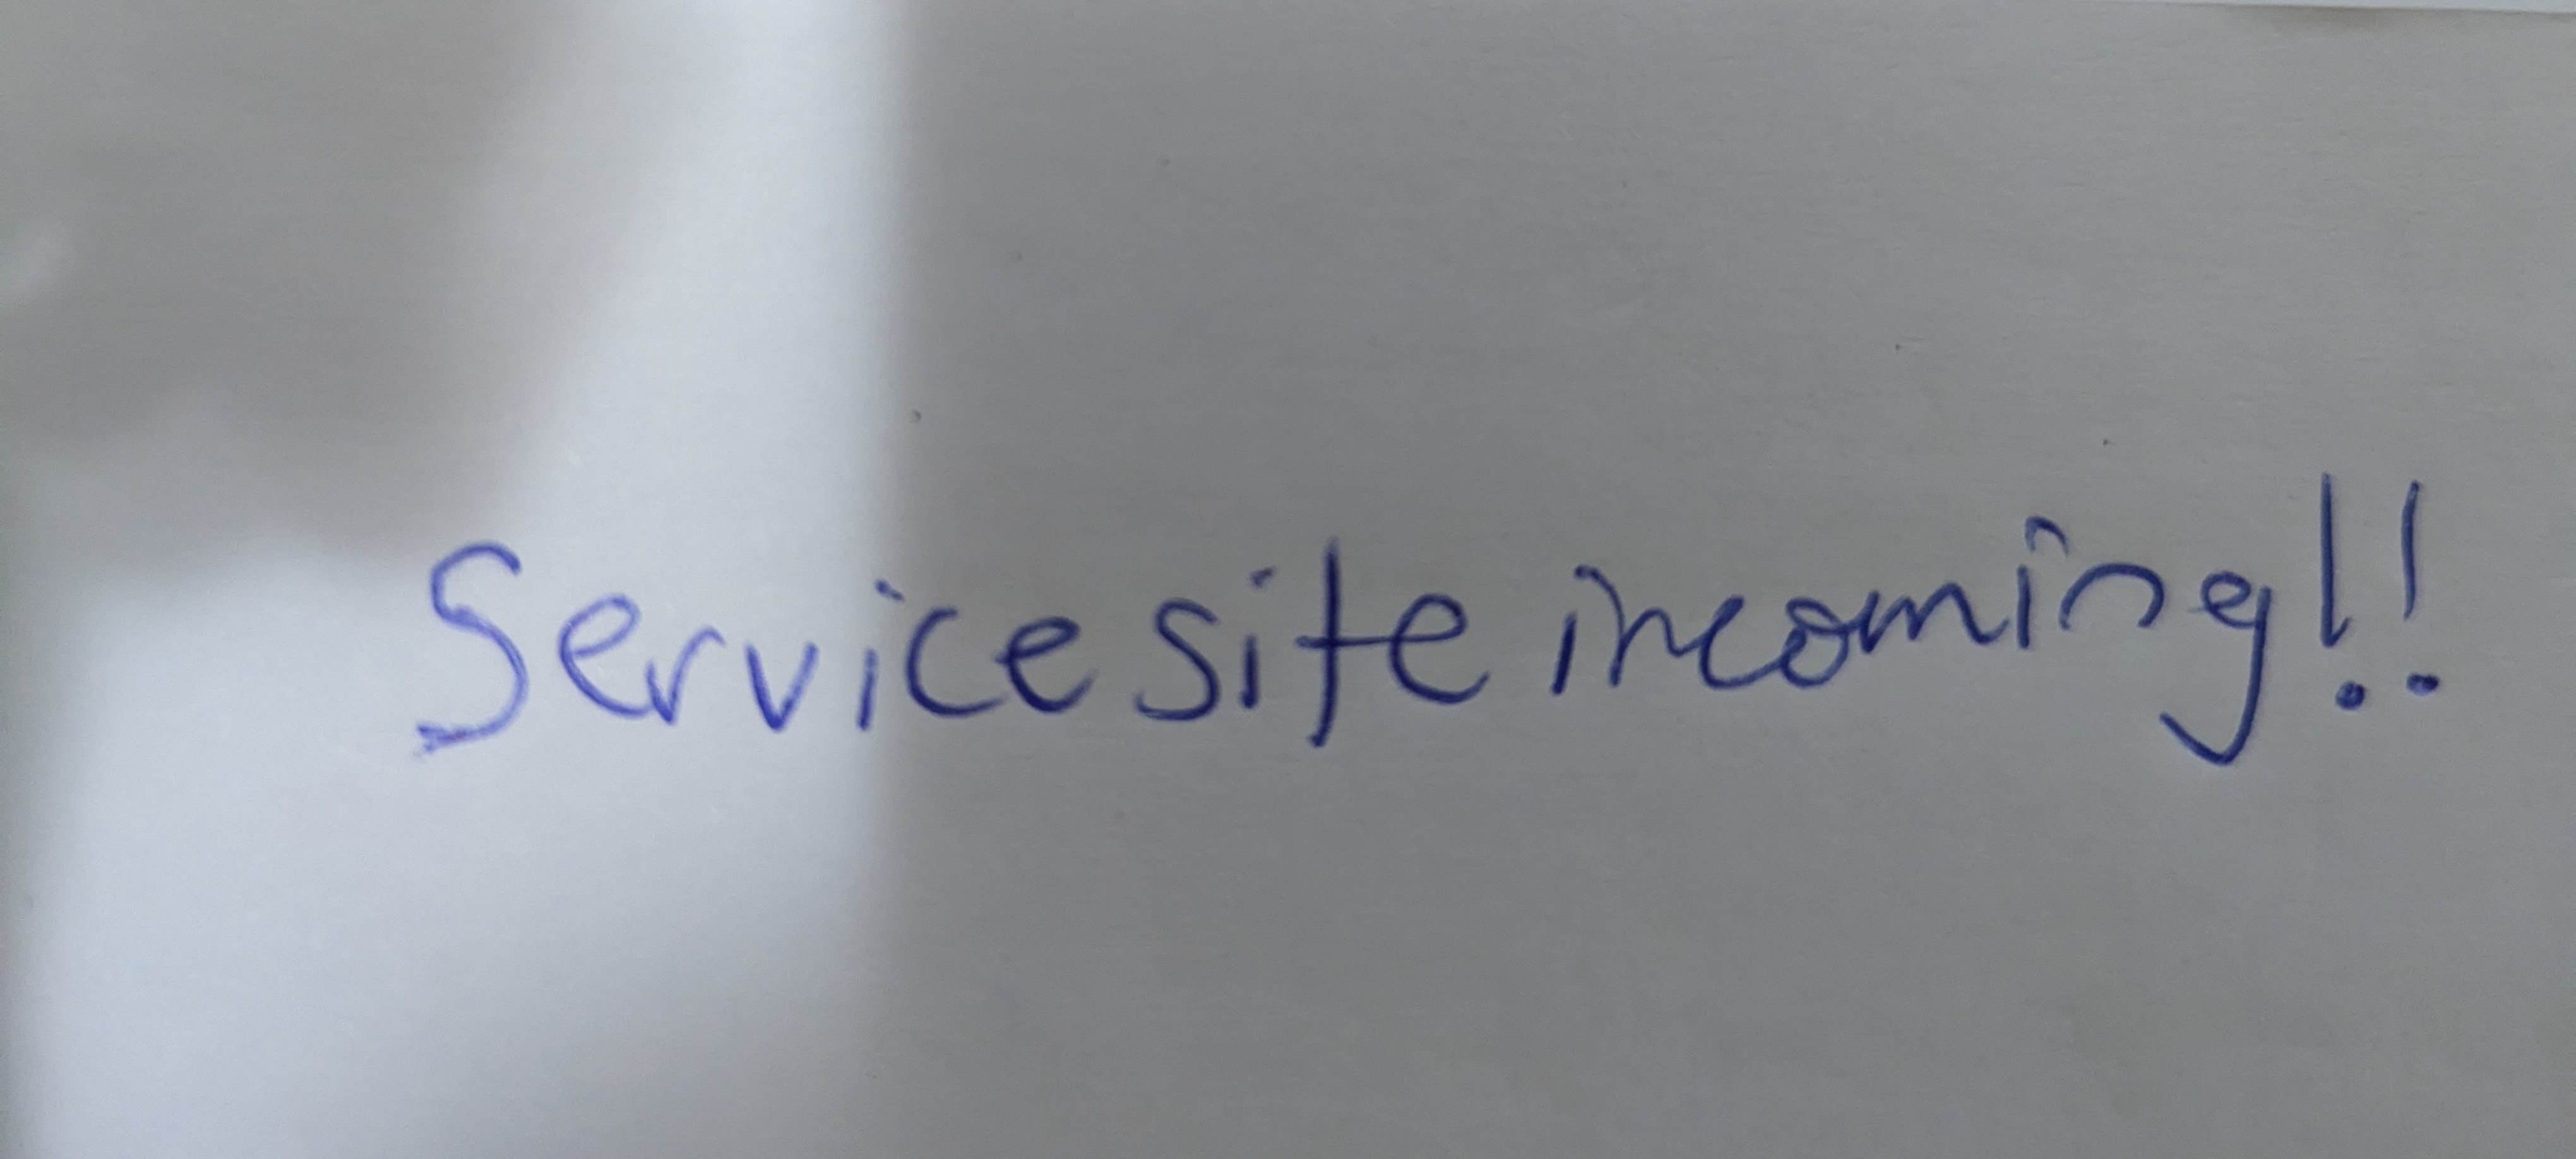 Service site incoming!!